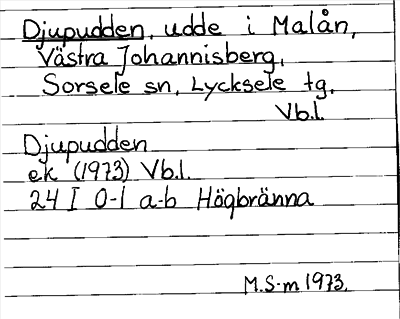 Djupudden, udde i Malån,
Västra Johannisberg,
Sorsele sn, Lycksele tg,
Vb.l.
Djupudden
ek (1973) Vb.l.
24 I 0-1 a-b Högbränna
M.S-m 1973.